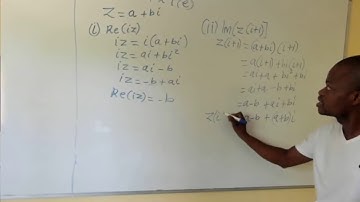 Z = a + bi
(i) Re(iz)
iz = i(a + bi)
iz = ai + bi²
iz = ai - b
iz = -b + ai
Re(iz) = -b
(ii) Im[z(i+1]
z(i+1) = (a+bi)(i+1)
= a(i+1) + bi(i+1)
= ai + a + bi² + bi
= ai + a - b + bi
= a-b + ai + bi
z(i a-b + (a+b)i